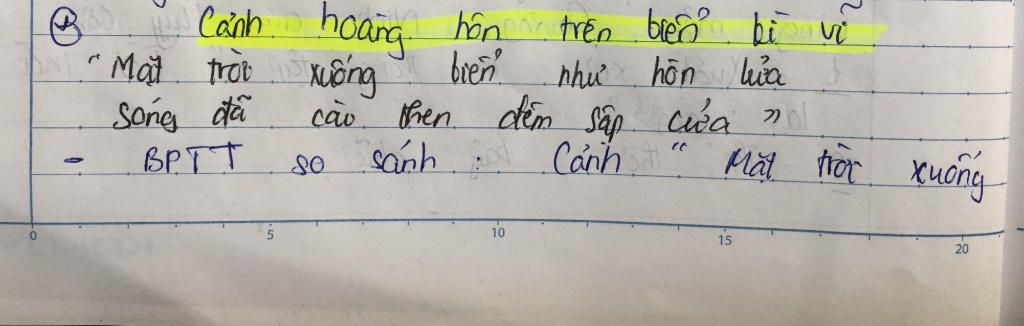 * Cảnh hoàng hôn trên biển bì vĩ
"Mặt trời xuống biển như hòn lửa
sóng đã cào then đêm sập cửa"
- BPTT so sánh : Cảnh "Mặt trời xuống
0 5 10 15 20